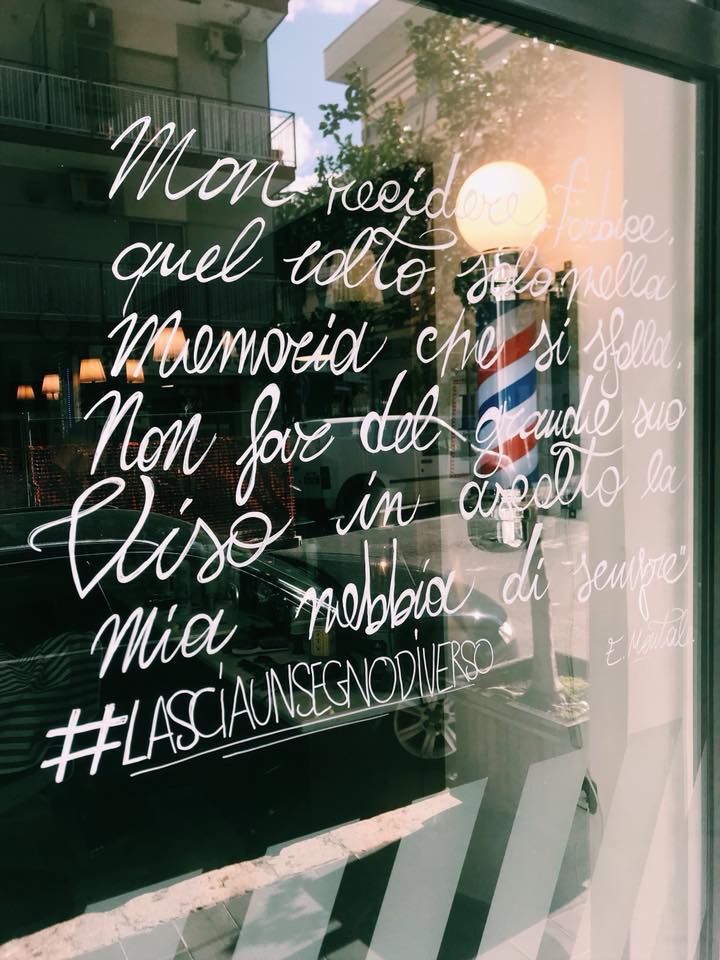 Non recidere, forbice,
quel volto, solo nella
memoria che si sfolla,
Non far del grande suo
Viso in ascolto la
mia nebbia di sempre"
E. Montale
#LASCIAUNSEGNODIVERSO